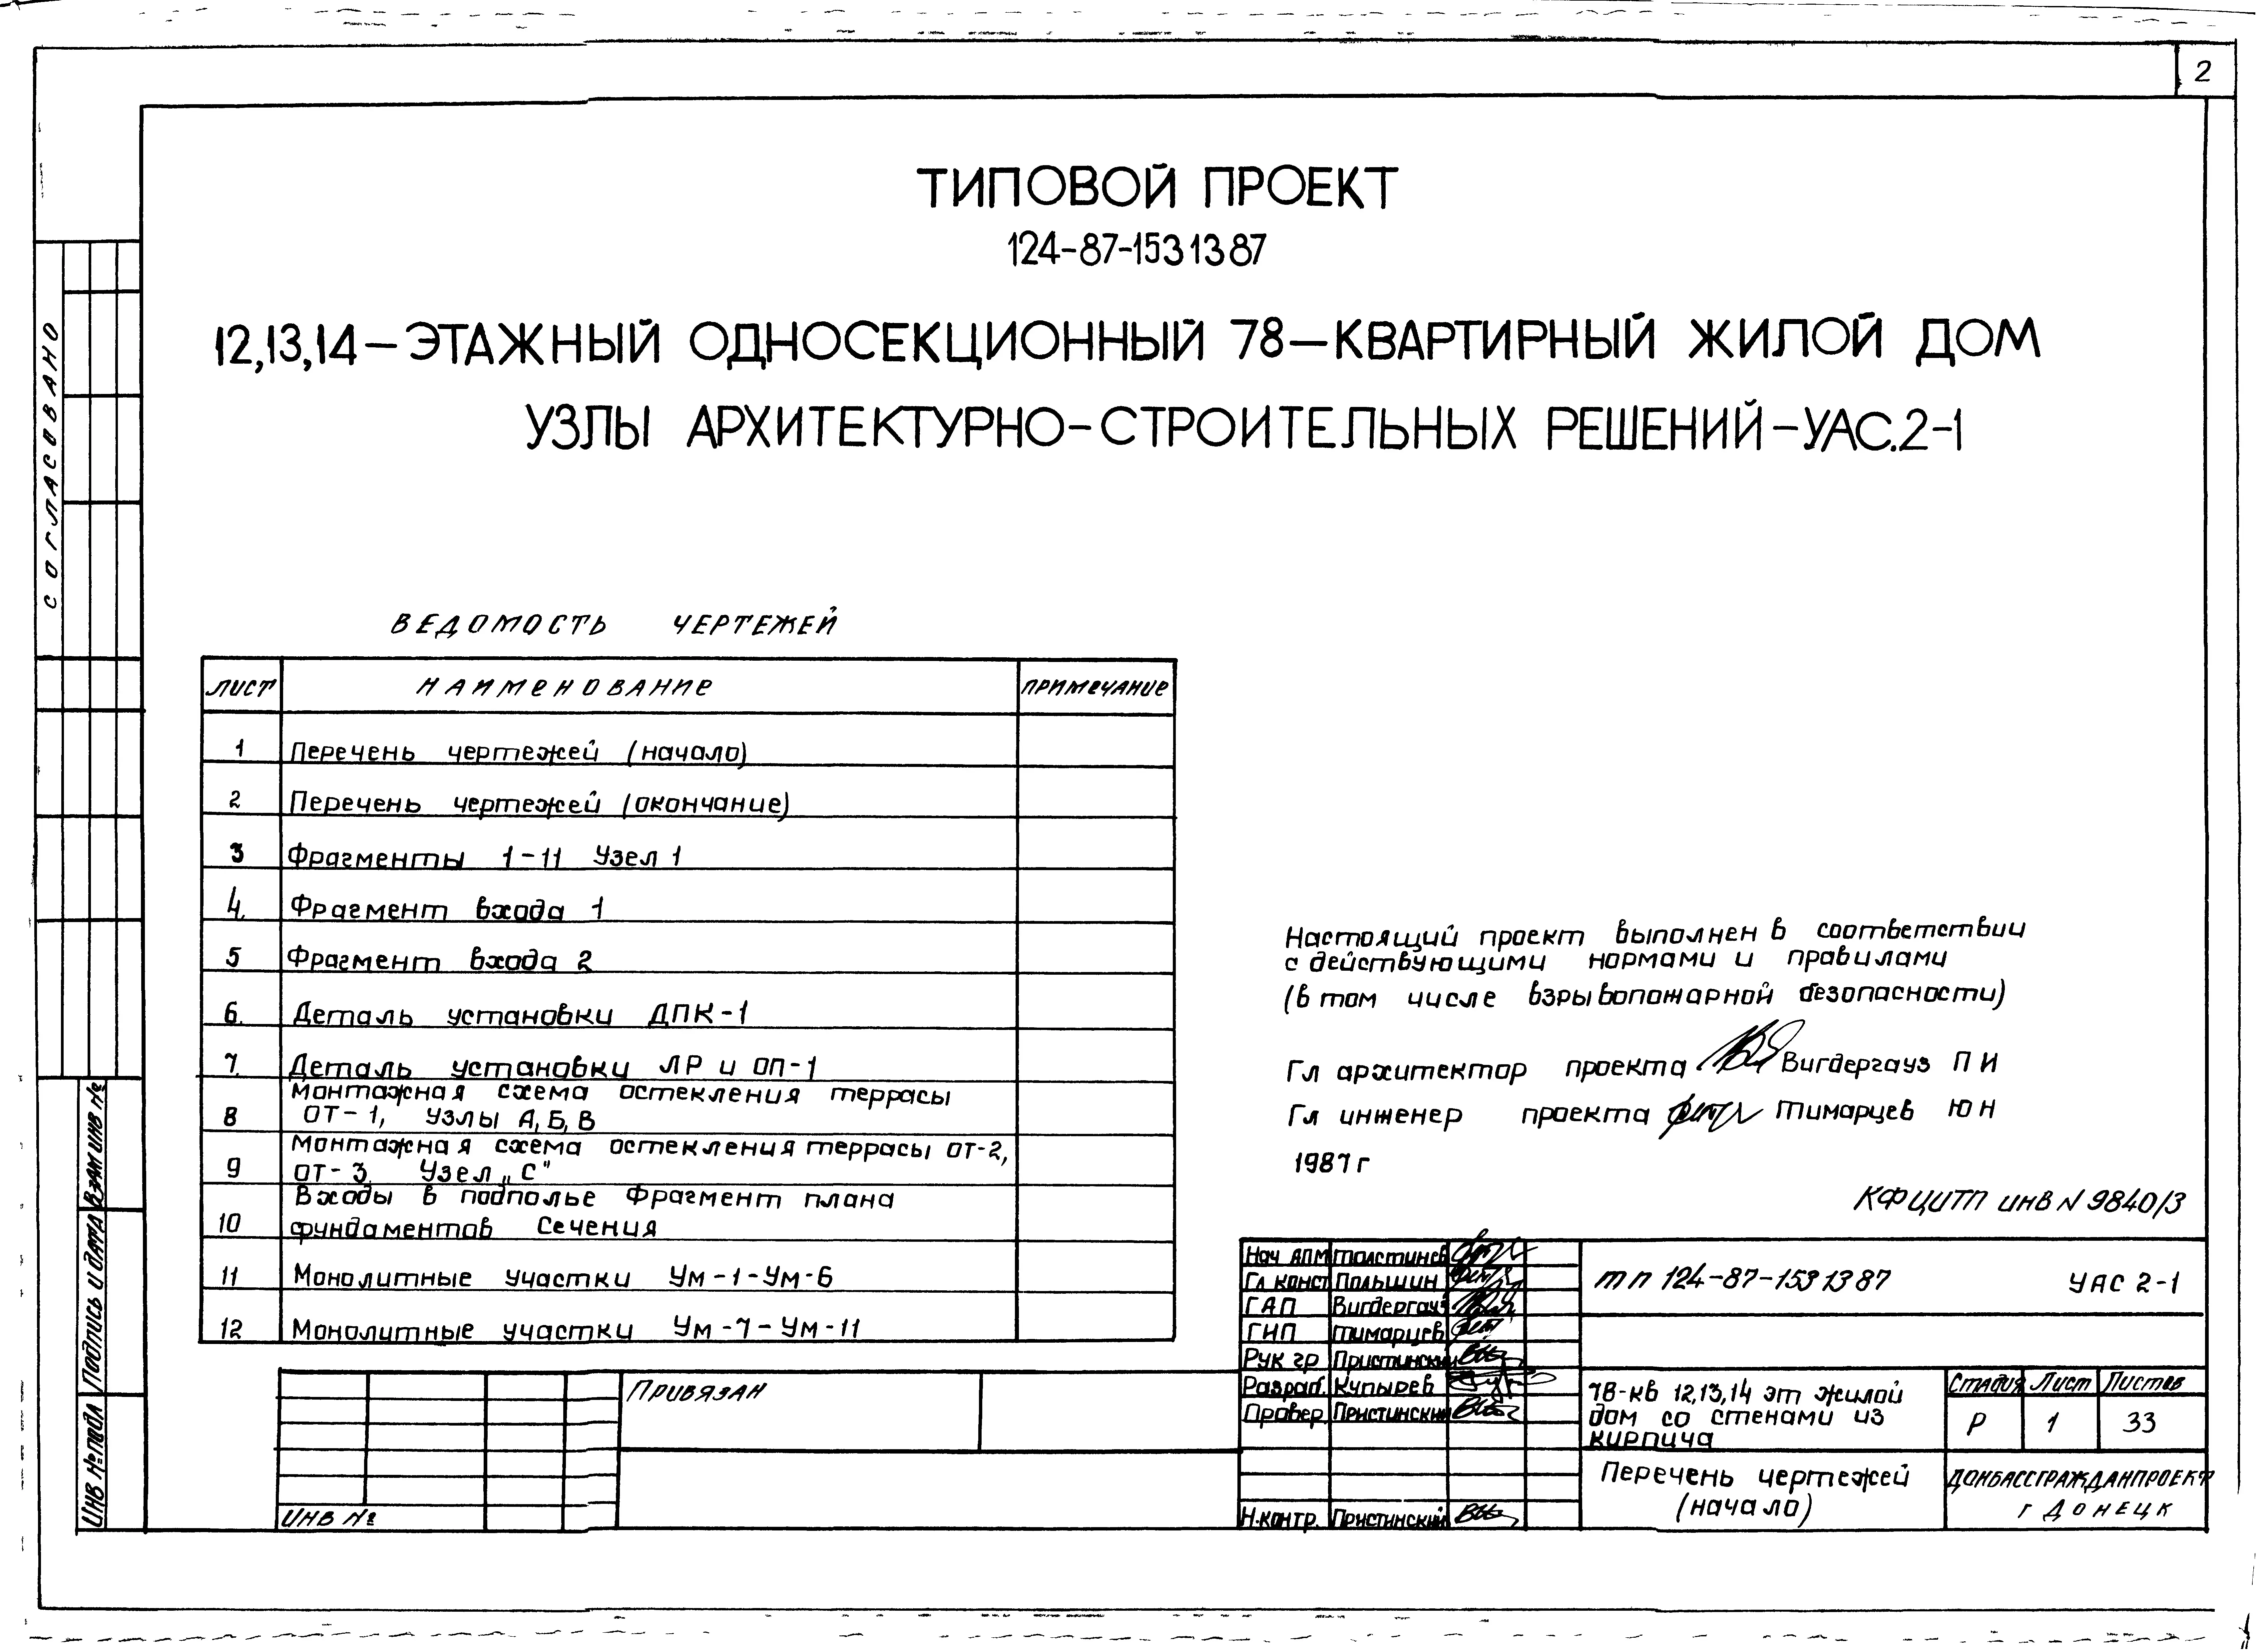 2
ТИПОВОЙ ПРОЕКТ
124-87-153 13 87
12,13,14-ЭТАЖНЫЙ ОДНОСЕКЦИОННЫЙ 78-КВАРТИРНЫЙ ЖИЛОЙ ДОМ
УЗЛЫ АРХИТЕКТУРНО-СТРОИТЕЛЬНЫХ РЕШЕНИЙ-УАС.2-1
СОГЛАСОВАНО
ВЕДОМОСТЬ ЧЕРТЕЖЕЙ
ЛИСТ НАИМЕНОВАНИЕ ПРИМЕЧАНИЕ
1 Перечень чертежей (начало)
2 Перечень чертежей (окончание)
3 Фрагменты 1-11 Узел 1
4. Фрагмент входа 1
5 Фрагмент входа 2
6. Деталь установки ДПК-1
7. Деталь установки ЛР и ОП-1
8 Монтажная схема остекления террасы
ОТ-1, Узлы А,Б,В
9 Монтажная схема остекления террасы ОТ-2,
ОТ-3 Узел „С"
10 Входы в подполье Фрагмент плана
фундаментов Сечения
11 Монолитные участки Ум-1-Ум-6
12 Монолитные участки Ум-7-Ум-11
Настоящий проект выполнен в соответствии
с действующими нормами и правилами
(в том числе взрывопожарной безопасности)
Гл архитектор проекта Вигдергауз П И
Гл инженер проекта Тимарцев Ю Н
1987 г
КФ ЦИТП инв N 9840/3
Нач АПМ Толстинев
Гл конст Польшин
ГАП Вигдергауз
ГИП Тимарцев
Рук гр Пристинский
Разраб. Купырев
Провер. Пристинский
Н.контр. Пристинский
ТП 124-87-153 13 87 УАС 2-1
78-кв 12,13,14 эт жилой
дом со стенами из
кирпича
Стадия Лист Листов
Р 1 33
Перечень чертежей
(начало)
ДОНБАССГРАЖДАНПРОЕКТ
г ДОНЕЦК
ПРИВЯЗАН
ИНВ №
ВЗАМ ИНВ №
Подпись и дата
ИНВ № подл